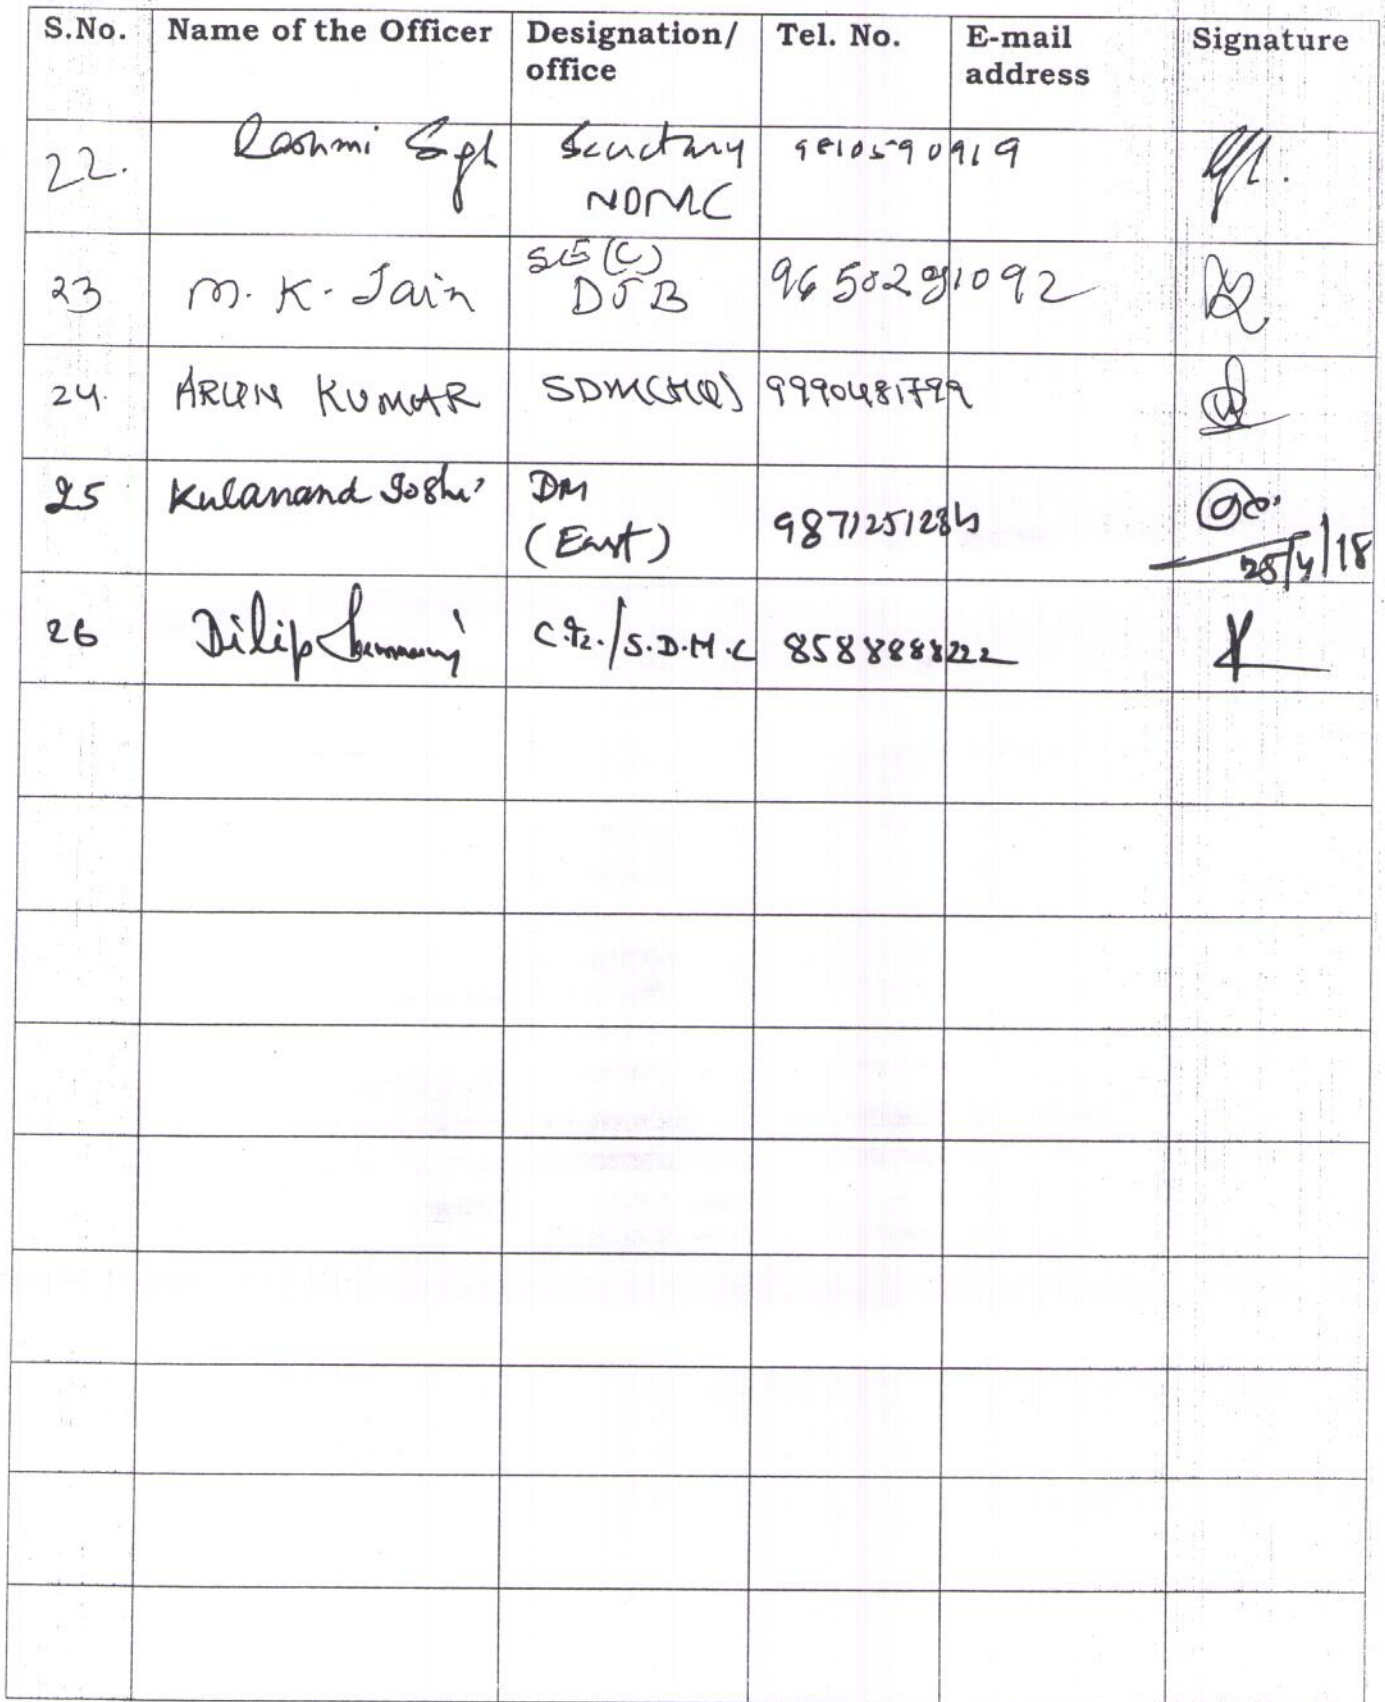 S.No. Name of the Officer Designation/ office Tel. No. E-mail address Signature
22. Rashmi Sgh Secretary NDMC 9810590919
23 M. K. Jain SE (C) DJB 9650291092
24. ARUN KUMAR SDM(HQ) 9990481799
25 Kulanand Joshi DM (East) 28/4/18
26 Dilip /S.D.M.C 8588888222